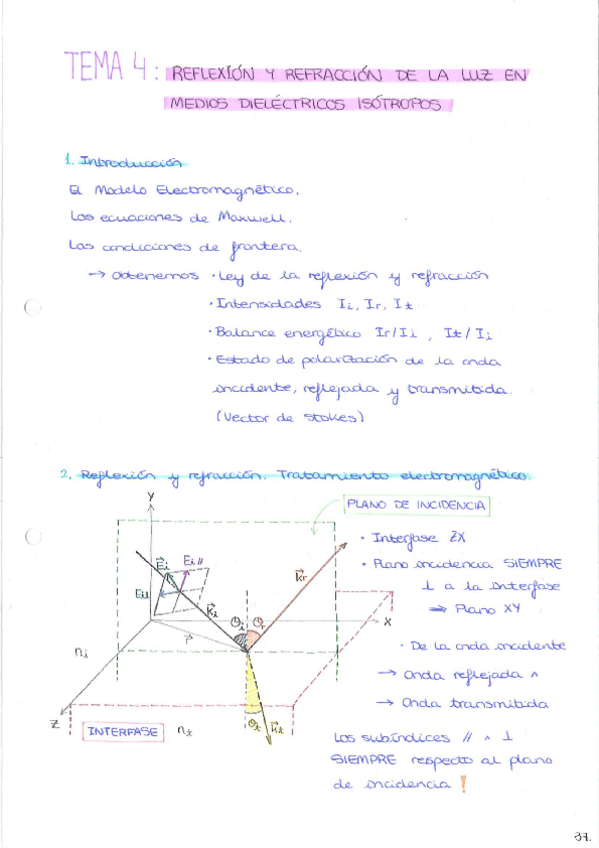 TEMA 4: REFLEXIÓN Y REFRACCIÓN DE LA LUZ EN
MEDIOS DIELÉCTRICOS ISÓTROPOS
1. Introducción
El Modelo Electromagnético.
Las ecuaciones de Maxwell.
Las condiciones de frontera.
→ obtenemos · Ley de la reflexión y refracción
· Intensidades Ii, Ir, It
· Balance energético Ir/Ii , It/Ii
· Estado de polarización de la onda
incidente, reflejada y transmitida.
(Vector de Stokes)
2. Reflexión y refracción. Tratamiento electromagnético.
PLANO DE INCIDENCIA
Y
E⃗i
Ei//
Ei⊥
k⃗i
k⃗r
θi
θr
X
r⃗
ni
Z
INTERFASE
nt
θt
k⃗t
· Interfase ZX
· Plano incidencia SIEMPRE
⊥ a la interfase
⇒ Plano XY
· De la onda incidente
→ Onda reflejada ∧
→ Onda transmitida
Los subíndices // ∧ ⊥
SIEMPRE respecto al plano
de incidencia !
37.